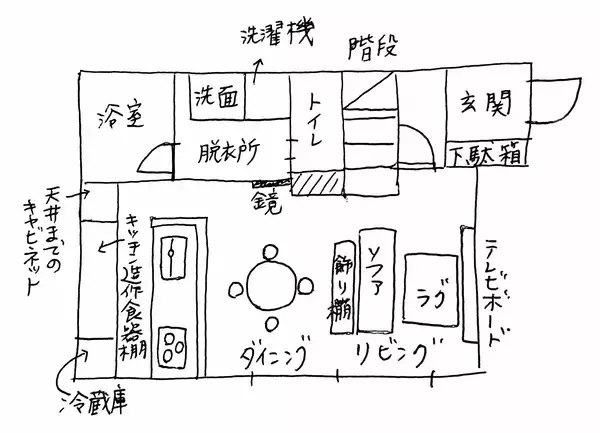 洗濯機
階段
浴室
洗面
脱衣所
トイレ
玄関
下駄箱
鏡
天井までの
キャビネット
キッチン造作食器棚
冷蔵庫
ダイニング
飾り棚
ソファ
リビング
ラグ
テレビボード